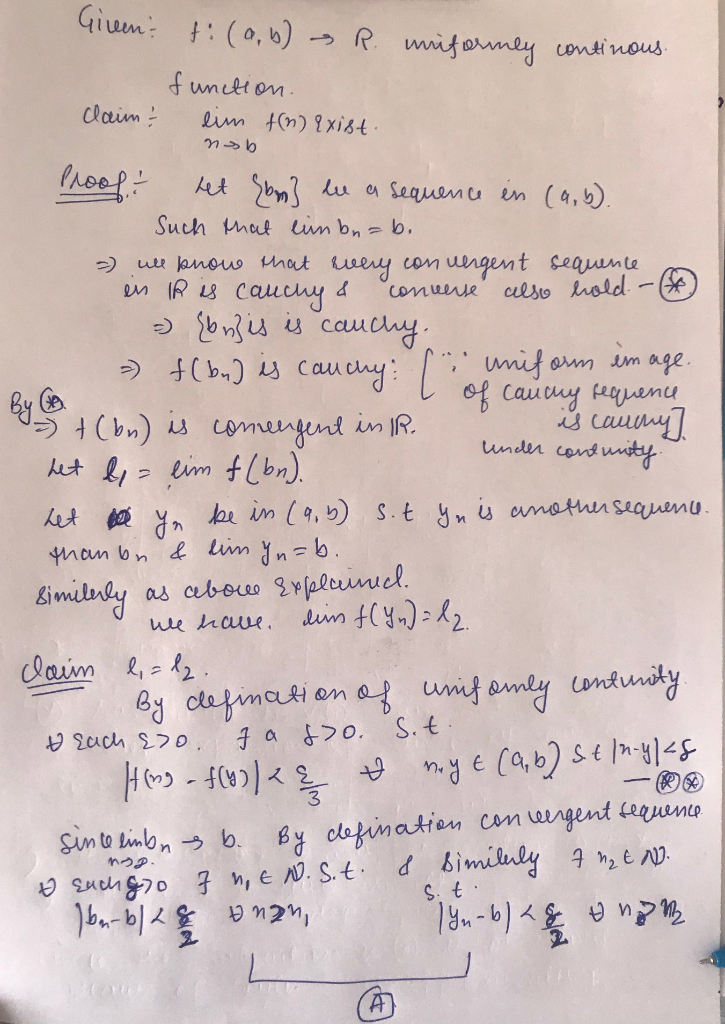 Given:- f: (a,b) → R. uniformly continous.
function.
Claim:- lim f(x) exist.
x→b
Proof:- Let {bn} be a sequence in (a,b).
Such that lim bn = b.
⇒ we know that every convergent sequence
in IR is cauchy & converse also hold - (*)
⇒ {bn} is is cauchy.
⇒ f(bn) is cauchy: [∵ uniform image
of cauchy sequence
is cauchy].
under contunity.
By (*)
⇒ f(bn) is convergent in IR.
Let l₁ = lim f(bn).
Let yn be in (a,b) s.t yn is another sequence.
than bn & lim yn = b.
Similerly as above explained.
we have. lim f(yn) = l₂.
Claim l₁ = l₂.
By defination of unifomly contunity
∀ each ε>0. ∃ a δ>0. s.t.
|f(x) - f(y)| < ε/3 ∀ x,y ∈ (a,b) s.t |x-y|<δ
— (*)(*)
Since limbn → b. By defination convergent sequence
n→∞.
∀ each δ>0 ∃ n₁ ∈ N. s.t. & Similerly ∃ n₂ ∈ N.
s.t.
|bn-b| < δ/2 ∀ n≥n₁ |yn-b| < δ/2 ∀ n≥n₂
(A)